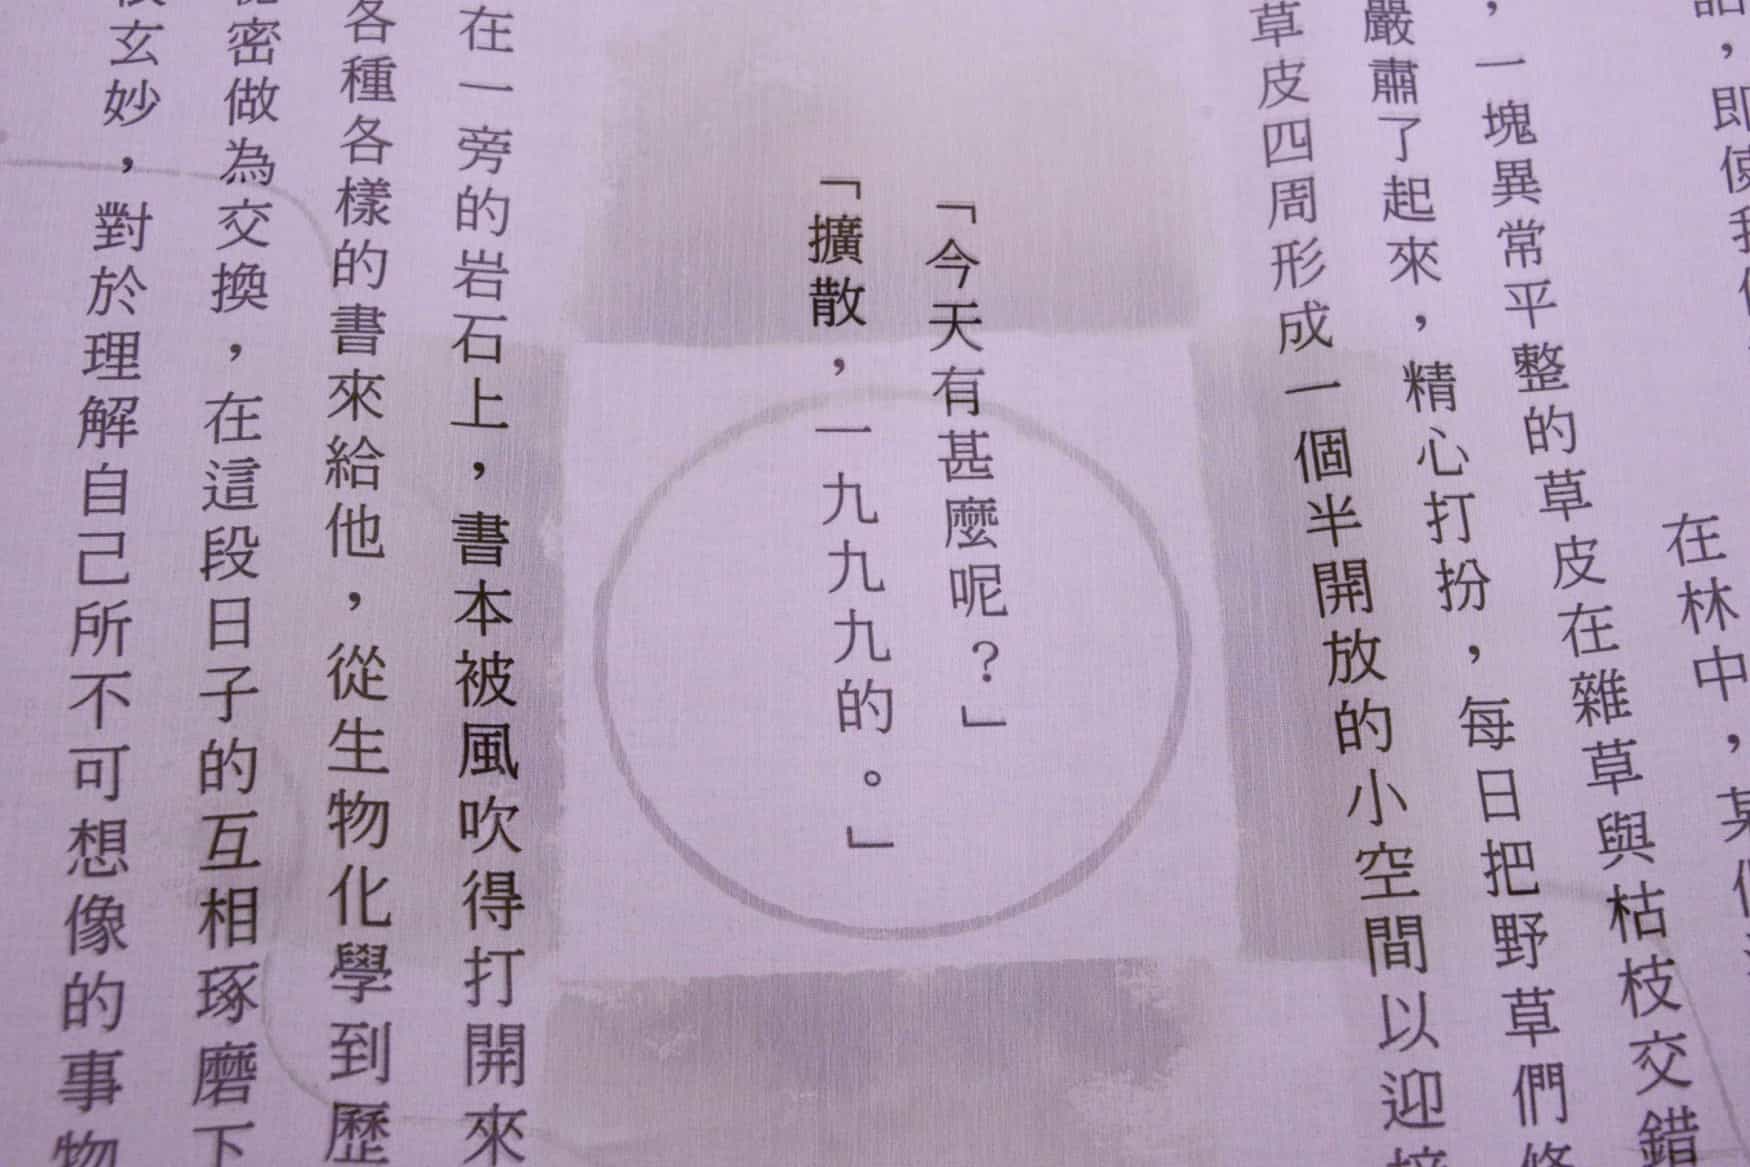 話，即使我
在林中，某
，一塊異常平整的草皮在雜草與枯枝交錯
嚴肅了起來，精心打扮，每日把野草們修
草皮四周形成一個半開放的小空間以迎接
「今天有甚麼呢？」
「擴散，一九九九的。」
在一旁的岩石上，書本被風吹得打開來
各種各樣的書來給他，從生物化學到歷
密做為交換，在這段日子的互相琢磨下
玄妙，對於理解自己所不可想像的事物